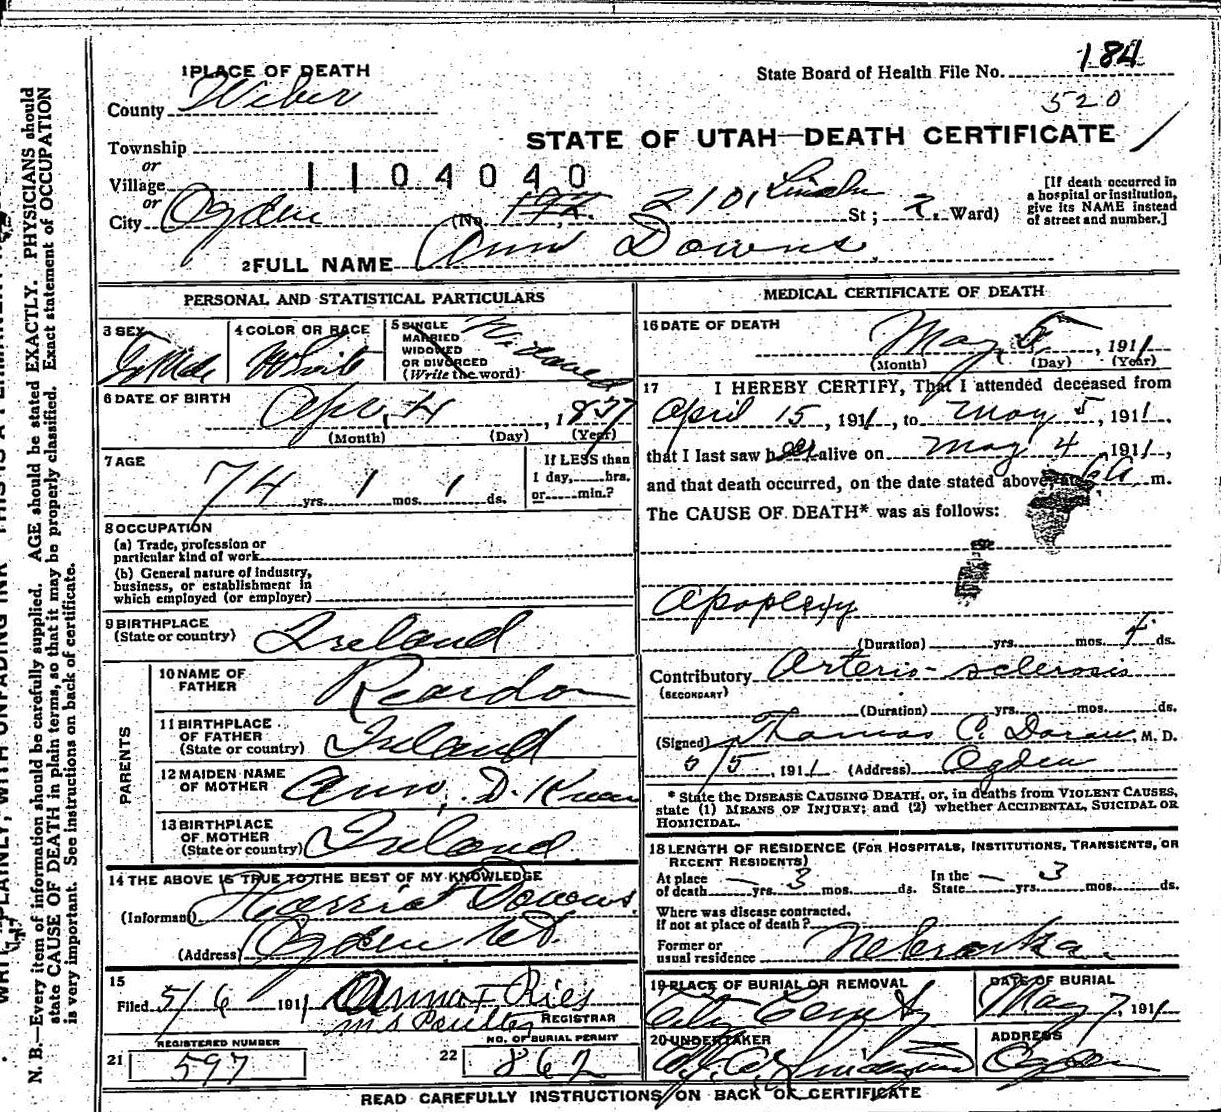 1 PLACE OF DEATH
State Board of Health File No. 184
County Weber
520
STATE OF UTAH—DEATH CERTIFICATE
Township
or
Village 1104040
or
City Ogden (No. 2101 Lincoln St; 2. Ward)
[If death occurred in
a hospital or institution,
give its NAME instead
of street and number.]
2 FULL NAME Ann Downs.
PERSONAL AND STATISTICAL PARTICULARS
3 SEX Female
4 COLOR OR RACE White
5 SINGLE
MARRIED
WIDOWED
OR DIVORCED
(Write the word) Widowed
6 DATE OF BIRTH Apr. 4, 1837
(Month) (Day) (Year)
7 AGE
74 yrs. 1 mos. 1 ds.
If LESS than
1 day, hrs.
or min.?
8 OCCUPATION
(a) Trade, profession or
particular kind of work
(b) General nature of industry,
business, or establishment in
which employed (or employer)
9 BIRTHPLACE
(State or country) Ireland
PARENTS
10 NAME OF
FATHER Reardon
11 BIRTHPLACE
OF FATHER
(State or country) Ireland
12 MAIDEN NAME
OF MOTHER Ann, D.
13 BIRTHPLACE
OF MOTHER
(State or country) Ireland
14 THE ABOVE IS TRUE TO THE BEST OF MY KNOWLEDGE
(Informant) Harriet Downs.
(Address) Ogden Ut.
15
Filed 5/6 1911 Anna F Ries
REGISTRAR
REGISTERED NUMBER
21 597
NO. OF BURIAL PERMIT
22 862
MEDICAL CERTIFICATE OF DEATH
16 DATE OF DEATH
May 5, 1911
(Month) (Day) (Year)
17 I HEREBY CERTIFY, That I attended deceased from
April 15, 1911, to May 5, 1911,
that I last saw her alive on May 4, 1911,
and that death occurred, on the date stated above, at 6 A. m.
The CAUSE OF DEATH* was as follows:
Apoplexy
(Duration) yrs. mos. 4 ds.
Contributory Arterio-sclerosis
(SECONDARY)
(Duration) yrs. mos. ds.
(Signed) Thomas C. M. D.
5/5, 1911 (Address) Ogden
* State the DISEASE CAUSING DEATH, or, in deaths from VIOLENT CAUSES,
state (1) MEANS OF INJURY; and (2) whether ACCIDENTAL, SUICIDAL OR
HOMICIDAL.
18 LENGTH OF RESIDENCE (FOR HOSPITALS, INSTITUTIONS, TRANSIENTS, OR
RECENT RESIDENTS)
At place
of death — yrs. 3 mos. ds.
In the
State — yrs. 3 mos. ds.
Where was disease contracted,
if not at place of death?
Former or
usual residence Nebraska.
19 PLACE OF BURIAL OR REMOVAL
City
DATE OF BURIAL
May 7, 1911
20 UNDERTAKER
ADDRESS
Ogden
READ CAREFULLY INSTRUCTIONS ON BACK OF CERTIFICATE
N. B.—Every item of information should be carefully supplied. AGE should be stated EXACTLY. PHYSICIANS should
state CAUSE OF DEATH in plain terms, so that it may be properly classified. Exact statement of OCCUPATION
is very important. See instructions on back of certificate.